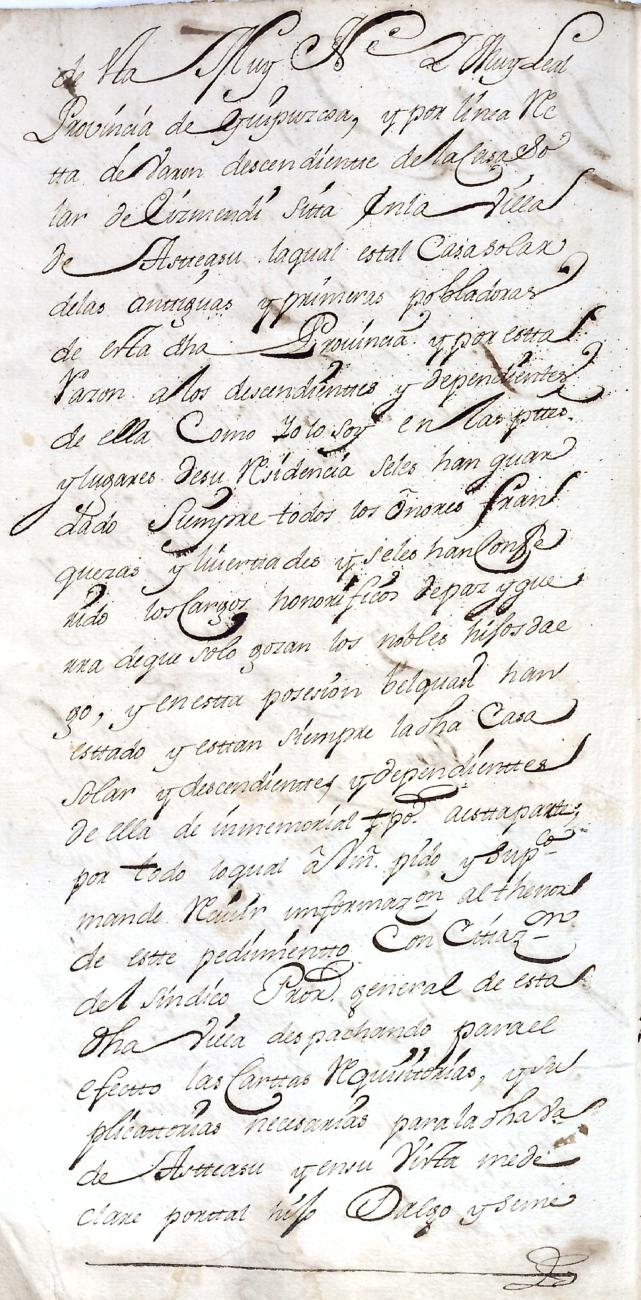 de sta Muy Ne L Muy Leal
Provincia de Guipuzcoa, y por linea Re
tta de Varon descendiente de la Casa So
lar de Eizmendi sitta En la Villa
de Astteasu laqual estal Casa solar
delas antiguas y primeras pobladoras
de esta dha Provincia y por estta
Razon a los descendienttes y dependienttes
de ella Como Yo lo soy en las pttes
y lugares desu Residencia seles han guar
dado Siempre todos los onores fran
quezas y livertades y seles han Confe
rido los Cargos honorificos de paz y gue
rra deque solo gozan los nobles hijos dal
go, y en estta posesion belquasi han
esttado y esttan siempre la dha Casa
solar y descendienttes y dependienttes
de ella de inmemorial tpo. aesttapartte,
por todo loqual a Vm. pido y supco.
mande Recivir informazon al thenor
de estte pedimientto Con Cittazon
del sindico Pror. general de esta
dha Villa despachando parael
efectto las Carttas Requisitorias, y su
plicattorias necesarias para la dha Va.
de Astteasu y en su Vista mede
clare porttal hijo Dalgo y seme